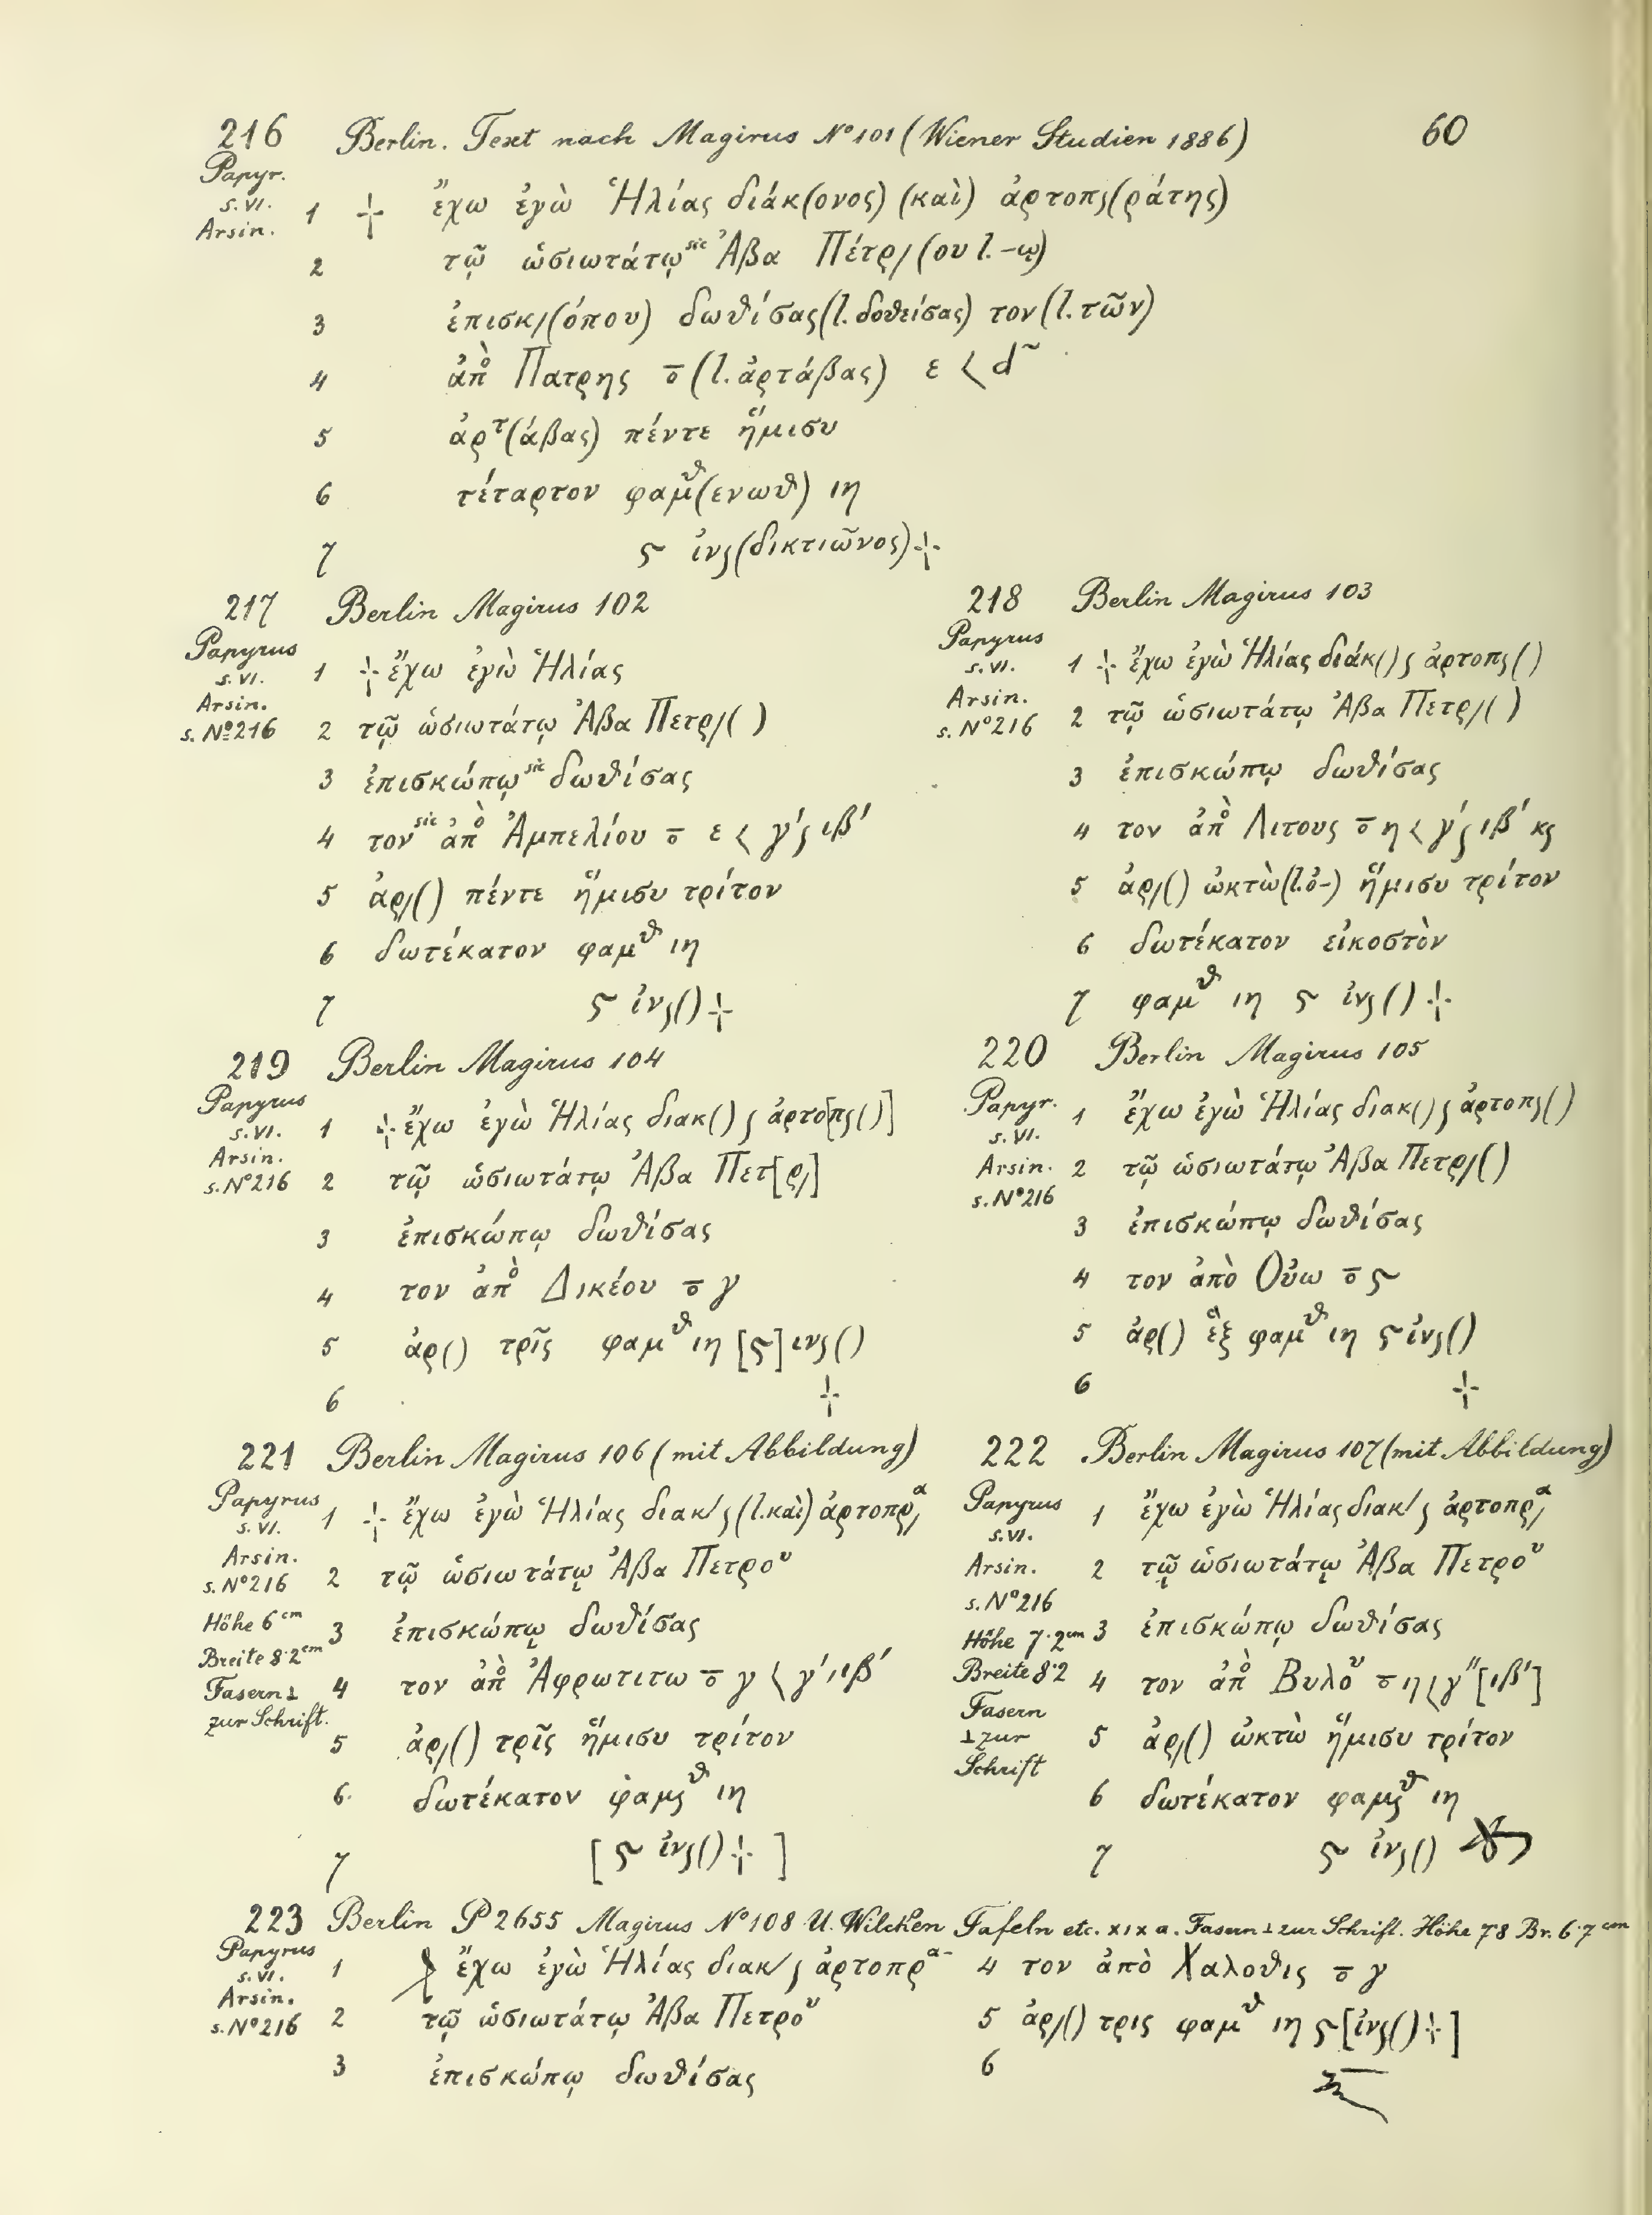 216 Berlin. Text nach Magirus Nº 101 (Wiener Studien 1886) 60
Papyr.
s. VI.
Arsin.
1 ⳨ ἔχω ἐγὼ Ἡλίας διάκ(ονος) (καὶ) ἀρτοπς(ράτης)
2 τῷ ὡσιωτάτῳ sic Ἄβα Πέτρ/(ου l. -ῳ)
3 ἐπισκ/(όπου) δωθίσας (l. δοθείσας) τον (l. τῶν)
4 ἀπὸ Πατρης ⲋ̄ (l. ἀρτάβας) ε < d~
5 ἀρτ(άβας) πέντε ἥμισυ
6 τέταρτον φαμθ(ενωθ) ιη
7 ς ἰνς(δικτιῶνος) ⳨
217 Berlin Magirus 102
Papyrus
s. VI.
Arsin.
s. Nº 216
1 ⳨ ἔχω ἐγὼ Ἡλίας
2 τῷ ὡσιωτάτῳ Ἄβα Πετρ/( )
3 ἐπισκώπῳ sic δωθίσας
4 τον sic ἀπὸ Ἀμπελίου ⲋ̄ ε < γ' ς ιβ'
5 ἀρ/() πέντε ἥμισυ τρίτον
6 δωτέκατον φαμθ ιη
7 ς ἰνς() ⳨
218 Berlin Magirus 103
Papyrus
s. VI.
Arsin.
s. Nº 216
1 ⳨ ἔχω ἐγὼ Ἡλίας διάκ() ς ἀρτοπς()
2 τῷ ὡσιωτάτῳ Ἄβα Πετρ/( )
3 ἐπισκώπῳ δωθίσας
4 τον ἀπὸ Λιτους ⲋ̄ η < γ' ς ιβ' κς
5 ἀρ/() ὠκτὼ (l. ὀ-) ἥμισυ τρίτον
6 δωτέκατον εἰκοστὸν
7 φαμθ ιη ς ἰνς() ⳨
219 Berlin Magirus 104
Papyrus
s. VI.
Arsin.
s. Nº 216
1 ⳨ ἔχω ἐγὼ Ἡλίας διακ() ς ἀρτο[πς()]
2 τῷ ὡσιωτάτῳ Ἄβα Πετ[ρ/]
3 ἐπισκώπῳ δωθίσας
4 τον ἀπὸ Δικέου ⲋ̄ γ
5 ἀρ() τρῖς φαμθ ιη [ς] ινς()
6 ⳨
220 Berlin Magirus 105
Papyr.
s. VI.
Arsin.
s. Nº 216
1 ἔχω ἐγὼ Ἡλίας διακ() ς ἀρτοπς()
2 τῷ ὡσιωτάτῳ Ἄβα Πετρ/()
3 ἐπισκώπῳ δωθίσας
4 τον ἀπὸ Οὐω ⲋ̄ ς
5 ἀρ() ἓξ φαμθ ιη ς ἰνς()
6 ⳨
221 Berlin Magirus 106 (mit Abbildung)
Papyrus
s. VI.
Arsin.
s. Nº 216
Höhe 6 cm
Breite 8·2 cm
Fasern ⊥
zur Schrift.
1 ⳨ ἔχω ἐγὼ Ἡλίας διακ/ ς (l. καὶ) ἀρτοπρα/
2 τῷ ὡσιωτάτῳ Ἄβα Πετρου
3 ἐπισκώπῳ δωθίσας
4 τον ἀπὸ Ἀφρωτιτω ⲋ̄ γ < γ' ιβ'
5 ἀρ/() τρῖς ἥμισυ τρίτον
6 δωτέκατον φαμςθ ιη
7 [ς ἰνς() ⳨ ]
222 Berlin Magirus 107 (mit Abbildung)
Papyrus
s. VI.
Arsin.
s. Nº 216
Höhe 7·2 cm
Breite 8·2
Fasern
⊥ zur
Schrift
1 ἔχω ἐγὼ Ἡλίας διακ/ ς ἀρτοπρα/
2 τῷ ὡσιωτάτῳ Ἄβα Πετρου
3 ἐπισκώπῳ δωθίσας
4 τον ἀπὸ Βυλου ⲋ̄ η < γ'' [ιβ']
5 ἀρ/() ὠκτὼ ἥμισυ τρίτον
6 δωτέκατον φαμςθ ιη
7 ς ἰνς()
223 Berlin P 2655 Magirus Nº 108 U. Wilcken Tafeln etc. XIX a. Fasern ⊥ zur Schrift. Höhe 7·8 Br. 6·7 cm
Papyrus
s. VI.
Arsin.
s. Nº 216
1 ἔχω ἐγὼ Ἡλίας διακ/ ς ἀρτοπρα-
2 τῷ ὡσιωτάτῳ Ἄβα Πετρου
3 ἐπισκώπῳ δωθίσας
4 τον ἀπὸ Χαλοθις ⲋ̄ γ
5 ἀρ/() τρις φαμθ ιη ς [ἰνς() ⳨]
6